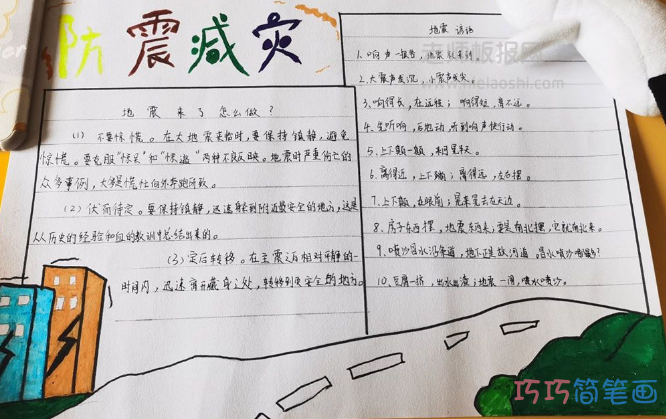 防震减灾
地震来了怎么做?
(1) 不要惊慌。在大地震来临时,要保持镇静,避免
惊慌。要克服"惊呆"和"惊逃"两种不良反映。地震时严重伤亡的
众多事例,大都是慌忙向外奔跑所致。
(2) 伏而待定。要保持镇静,迅速躲到附近最安全的地方,这是
从历史的经验和血的教训中总结出来的。
(3) 震后转移。在主震之后相对平静的一
时间内,迅速离开藏身之处,转移到更安全的地方。
地震谚语
1.响声一报告,地震就来到。
2.大震声发沉,小震声发尖。
3.响得长,在远程;响得短,离不远。
4.先听响,后地动,听到响声快行动。
5.上下颠一颠,来回晃半天。
6.离得近,上下蹦;离得远,左右摆。
7.上下颠,在眼前;晃来晃去在天边。
8.房子东西摆,地震东西来;要是南北摆,它就南北来。
9.喷沙冒水沿条道,地下正是故河道
10.豆腐一挤,出水出渣;地震一闹,喷水喷沙。
老师板报网
巧巧简笔画